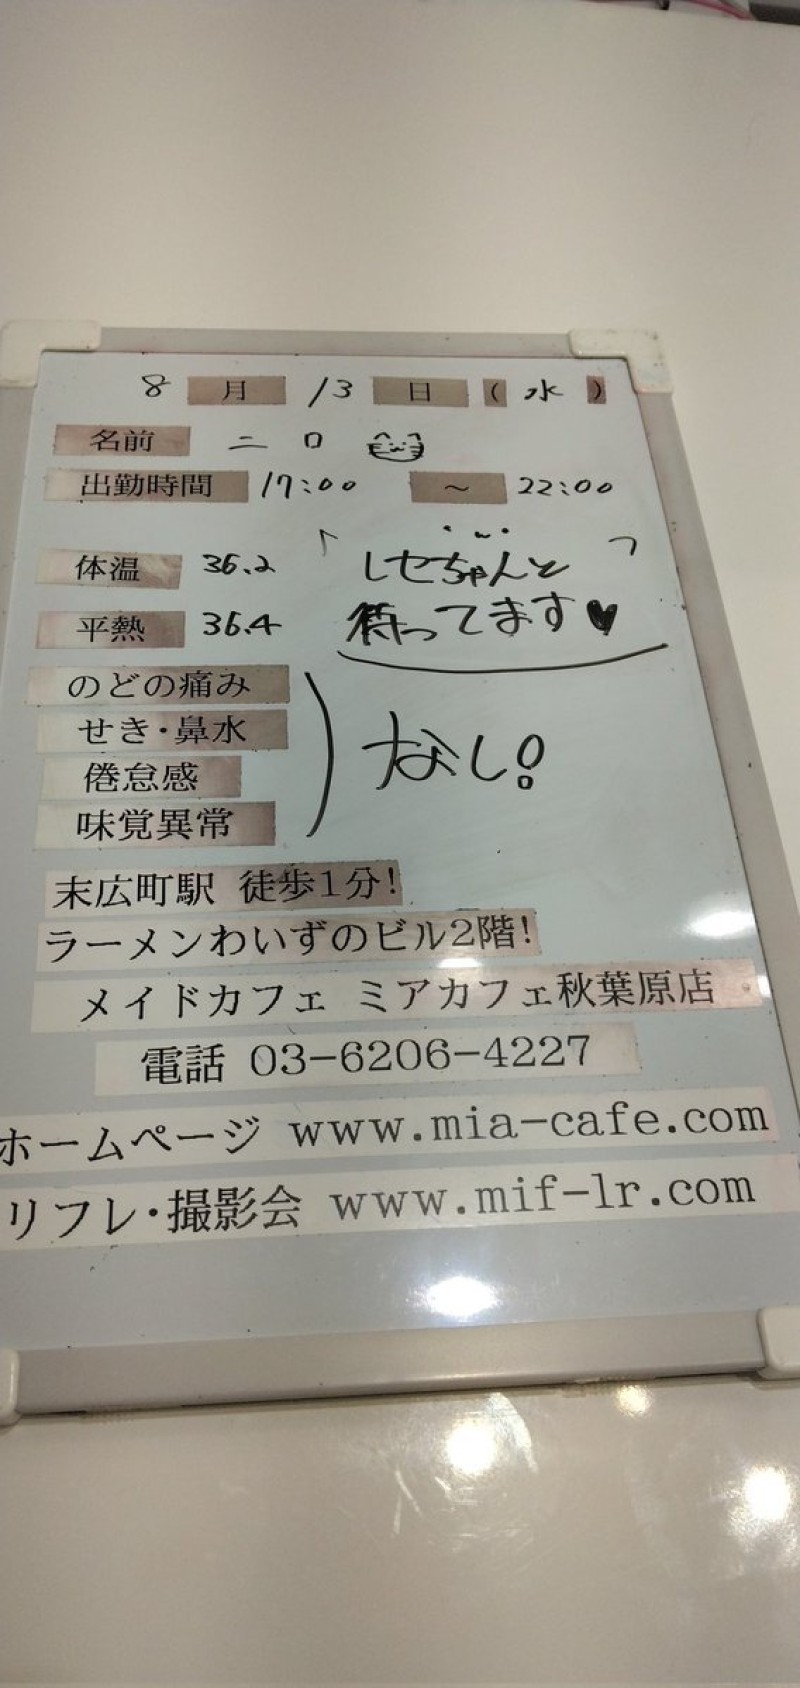 8月13日(水)
名前 ニロ
出勤時間 17:00 ~ 22:00
体温 36.2
平熱 36.4
「しせちゃんと
待ってます♥
のどの痛み
せき・鼻水
倦怠感
味覚異常
なし!
末広町駅 徒歩1分!
ラーメンわいずのビル2階!
メイドカフェ ミアカフェ秋葉原店
電話 03-6206-4227
ホームページ www.mia-cafe.com
リフレ・撮影会 www.mif-lr.com